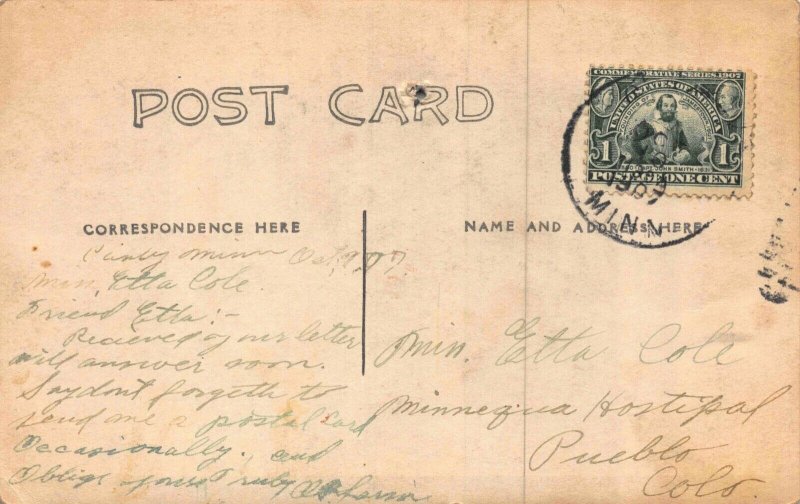 POST CARD
COMMEMORATIVE SERIES 1907
UNITED STATES OF AMERICA
1 1
CAPT. JOHN SMITH
POSTAGE ONE CENT
1907
MINN.
CORRESPONDENCE HERE
NAME AND ADDRESS HERE
Minn Oct, 9, 07.
Etta Cole.
Friend Etta:-
Recieved your letter
will answer soon.
Say dont forgeth to
send me a postal card
Occasionally, and
Oblige yours Truly
Etta Cole
Minnequa Hostipal
Pueblo
Colo